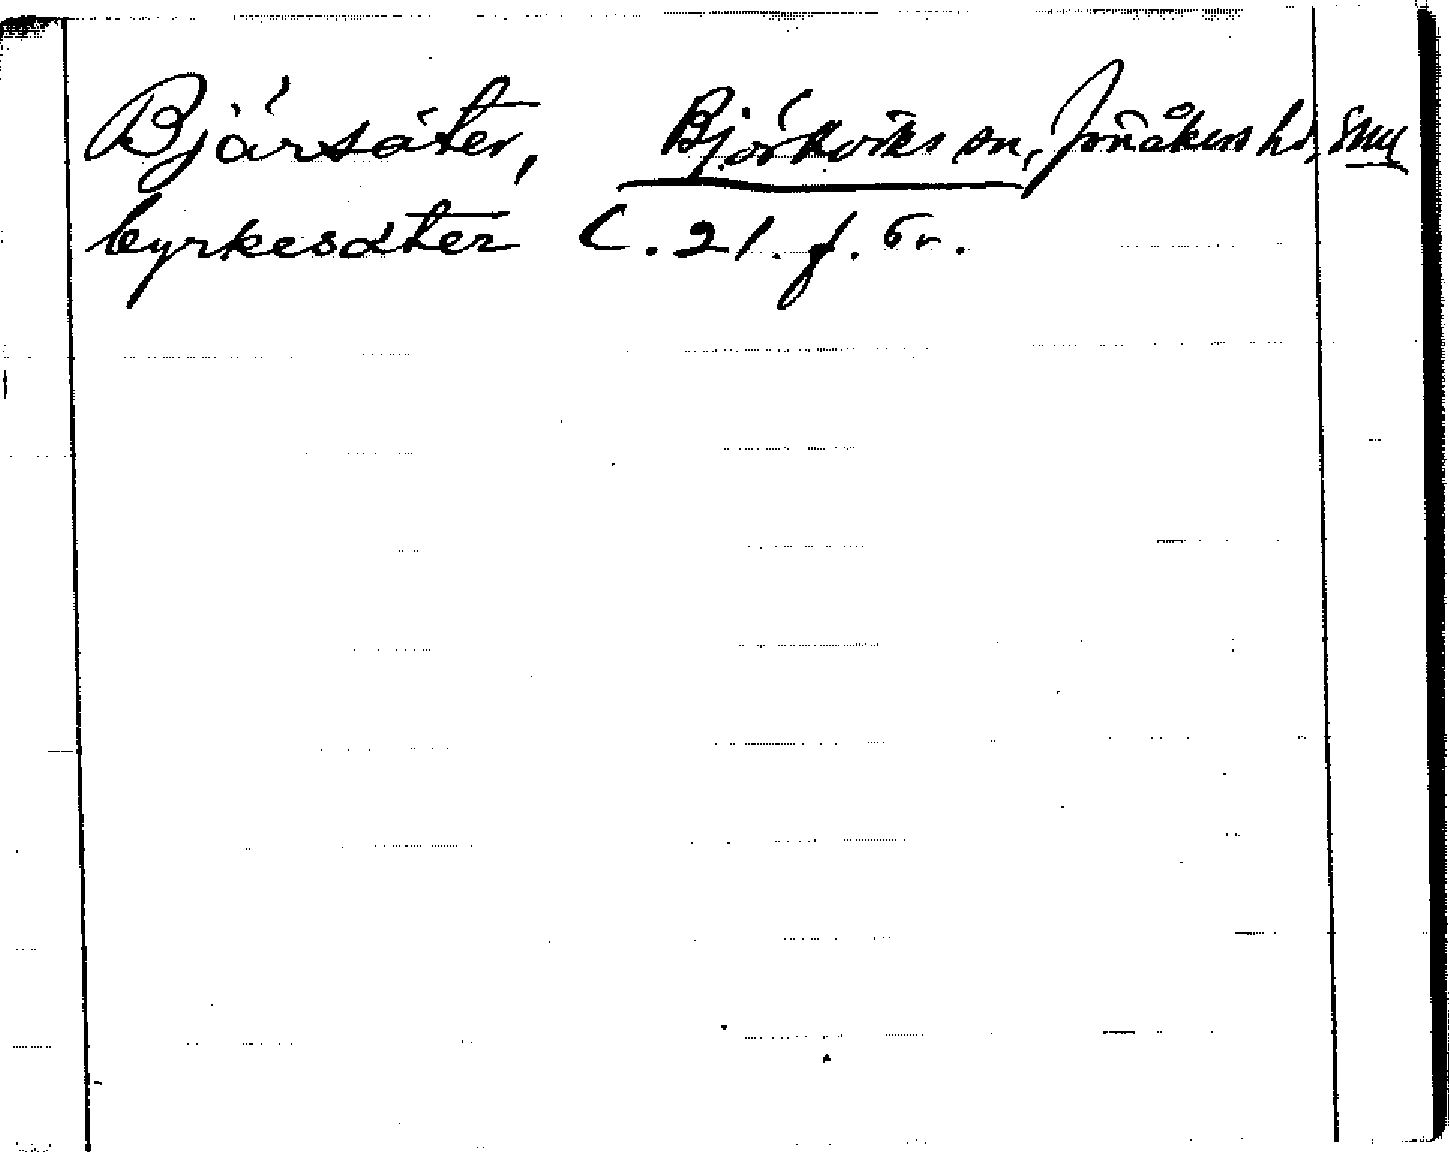 Bjärsäter, Björkviks sn, Jönåkers hd, Sml
byrkesäter C. 21. f. 6v.